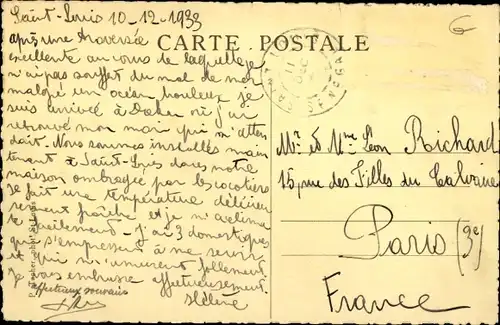 Saint-Louis 10-12-1933
après une traversée
CARTE POSTALE
excellente au cours de laquelle je
n'ai pas souffert du mal de mer
malgré un océan houleux je
suis arrivée à Dakar où j'ai
retrouvé mon mari qui m'atten
dait. Nous sommes installés main
tenant à Saint-Louis dans notre
maison ombragée par les cocotiers
Il fait une température délicieu
sement fraîche et je m'acclima
te facilement - J'ai 3 domestiques
qui s'empressent à me servir
et qui m'amusent follement.
Je vous embrasse affectueusement.
Hélène
Affectueux souvenirs
Mr et Mme Léon Richard
15, rue des Filles du Calvaire
Paris (3e)
France